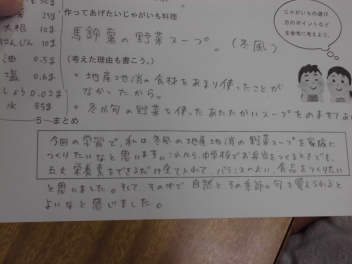 作ってあげたいじゃがいも料理
馬鈴薯の野菜スープ。(冬風)
大根 10g
にんじん 10g
油 0.5g
塩 0.6g
しょう 0.02g
水 85g
じゃがいもの選び
方のポイントなど
を参考に考えよう。
(考えた理由も書こう。)
・地産地消の食材をあまり使ったことが
なかったから。
・冬が旬の野菜を使ったあたたかいスープを
5 まとめ
今回の学習で、私は冬風の地産地消の野菜スープを家族に
つくりたいなと思います。これから、中学校でお弁当をつくるときでも、
五大栄養素をできるだけ全て入れて、バランスのよい食品をつくりたい
と思いました。そして、その中で自然とその季節の旬を覚えられると
よいなと感じました。